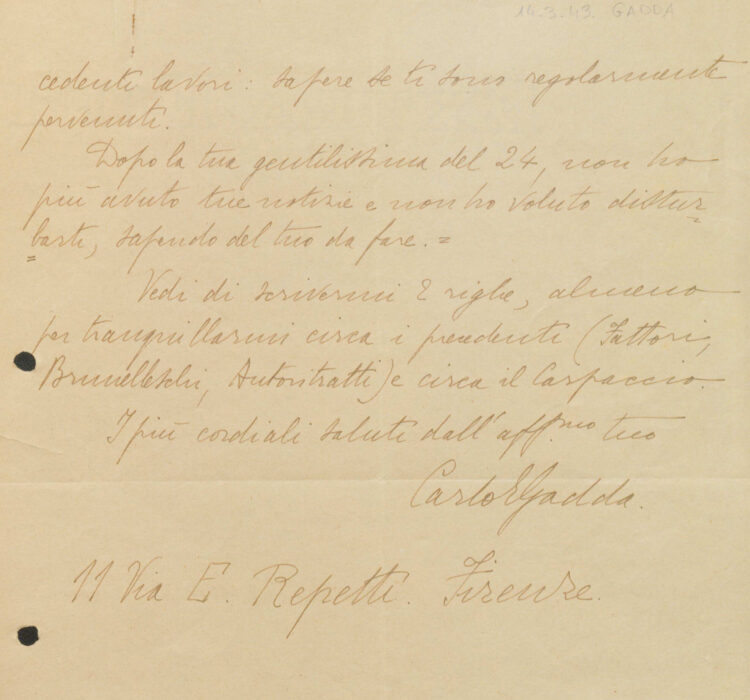 14.3.43. GADDA
cedenti lavori: sapere se ti sono regolarmente
pervenuti.
Dopo la tua gentilissima del 24, non ho
più avuto tue notizie e non ho voluto distur=
=barti, sapendo del tuo da fare.=
Vedi di scrivermi 2 righe, almeno
per tranquillarmi circa i precedenti (Fattori,
Brunelleschi, Autoritratti) e circa il Carpaccio.
I più cordiali saluti dall'aff.mo tuo
CarloEGadda.
11 Via E. Repetti. Firenze.